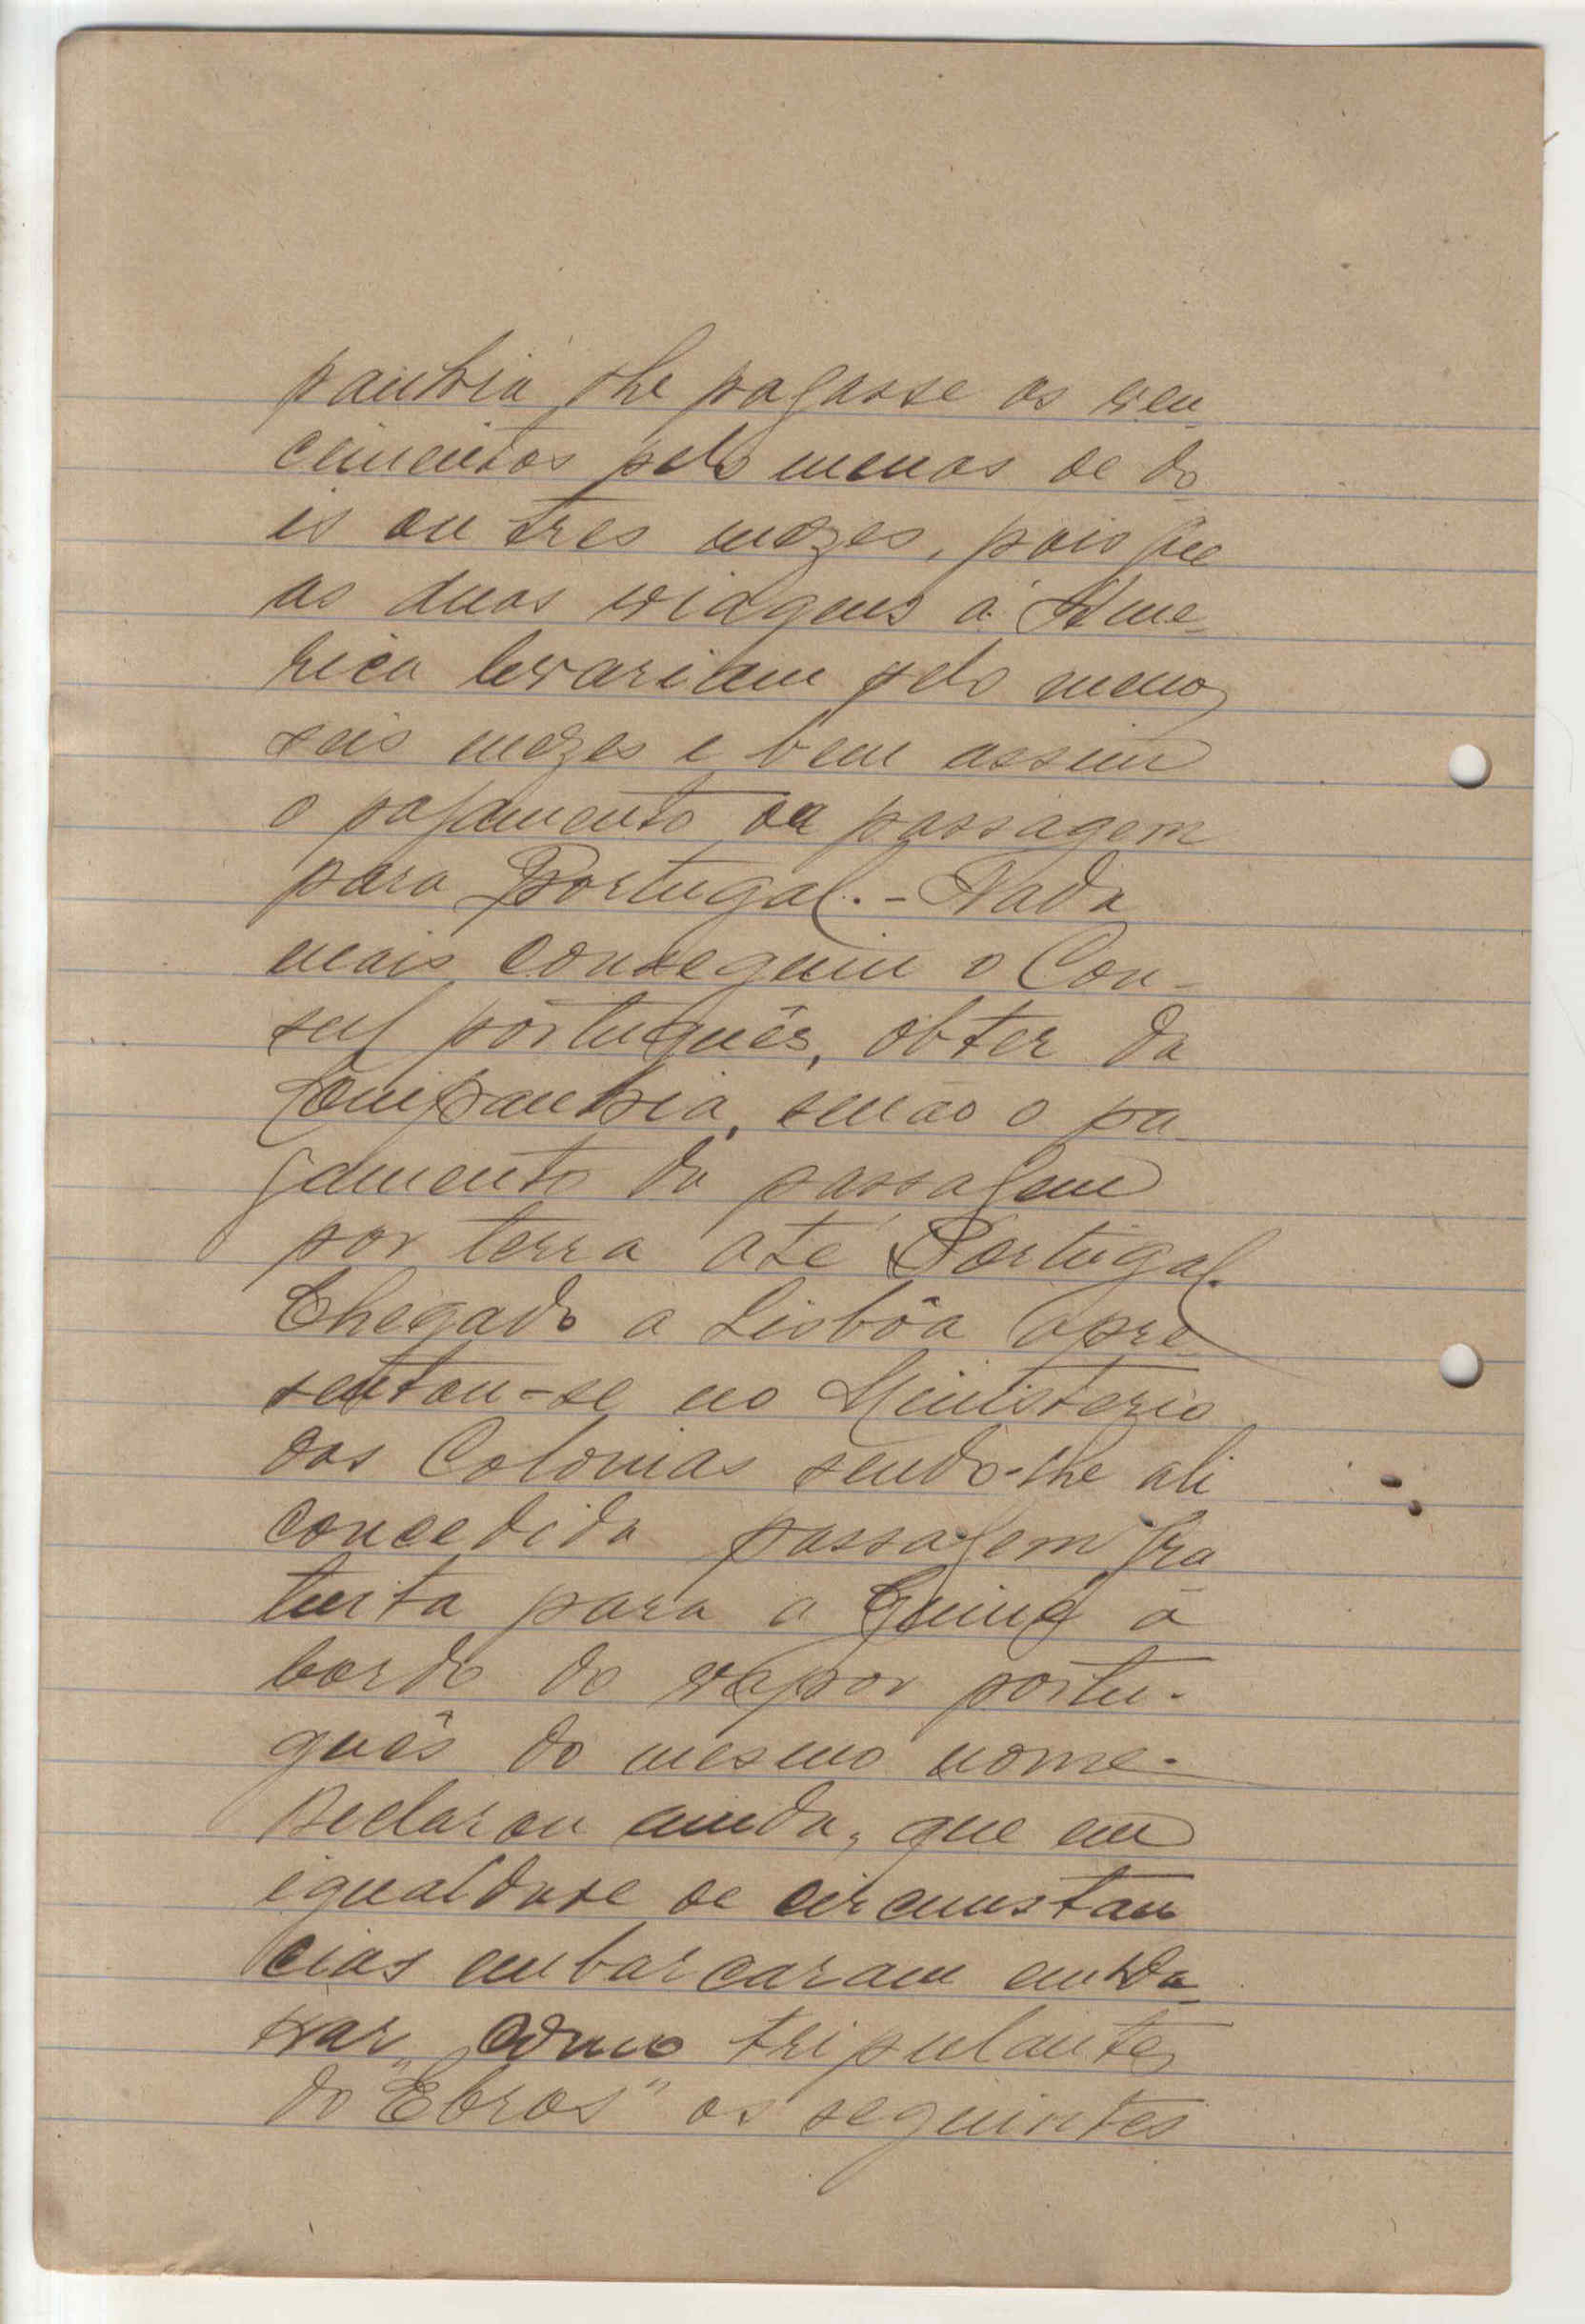 panhia lhe pagasse os ven
cimentos pelo menos de do
is ou tres mezes, pois que
as duas viagens á Ame-
rica levariam pelo menos
seis mezes e bem assim
o pagamento da passagem
para Portugal. - Nada
mais conseguiu o Con-
sul português, obter da
Companhia, senão o pa
gamento da passagem
por terra até Portugal.
Chegado a Lisbôa apre
sentou-se no Ministerio
das Colonias sendo-lhe ali
concedida passagem gra
tuita para a Guiné a
bordo do vapor portu-
guês do mesmo nome.
Declarou ainda, que em
igualdade de circumstan
cias embarcaram em Da-
kar, como tripulantes
do "Ebros" os seguintes